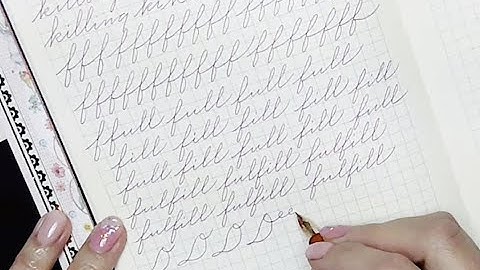 killing
killing
fffffffffff fffffff
fffffffffff fffffff
ffull full full full
fill fill fill fill fill
full fill full full full
fulfill fulfill fulfill
fulfill fulfill fulfill
D D D Dee